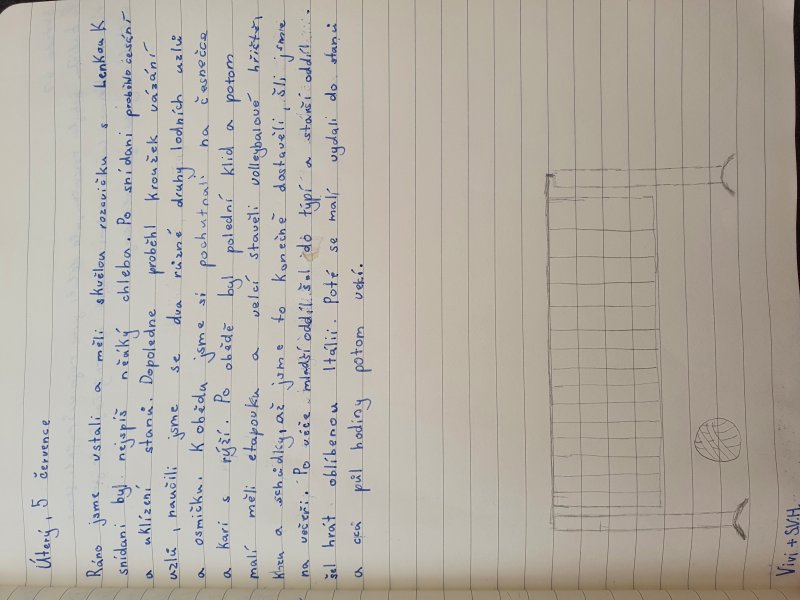 Úterý, 5 července
Ráno jsme vstali a měli skvělou rozcvičku s Lenkou K
snídani byl nejspíš něáký chleba. Po snídani proběhlo česání
a uklízení stanů. Dopoledne proběhl kroužek vázání
uzlů, naučili jsme se dva různé druhy lodních uzlů
a osmičku. K obědu jsme si pochutnali na česnečce
a kari s rýží. Po obědě byl polední klid a potom
malí měli etapovku a velcí stavěli volleybalové hřiště,
a schůdky, až jsme to konečně dostavěli, šli jsme
na večeři. Po véče mladší oddíl šel do týpí a starší oddíl
šel hrát oblíbenou Itálii. Poté se malí vydali do stanů
a cca půl hodiny potom velcí.
Vivi + SVH